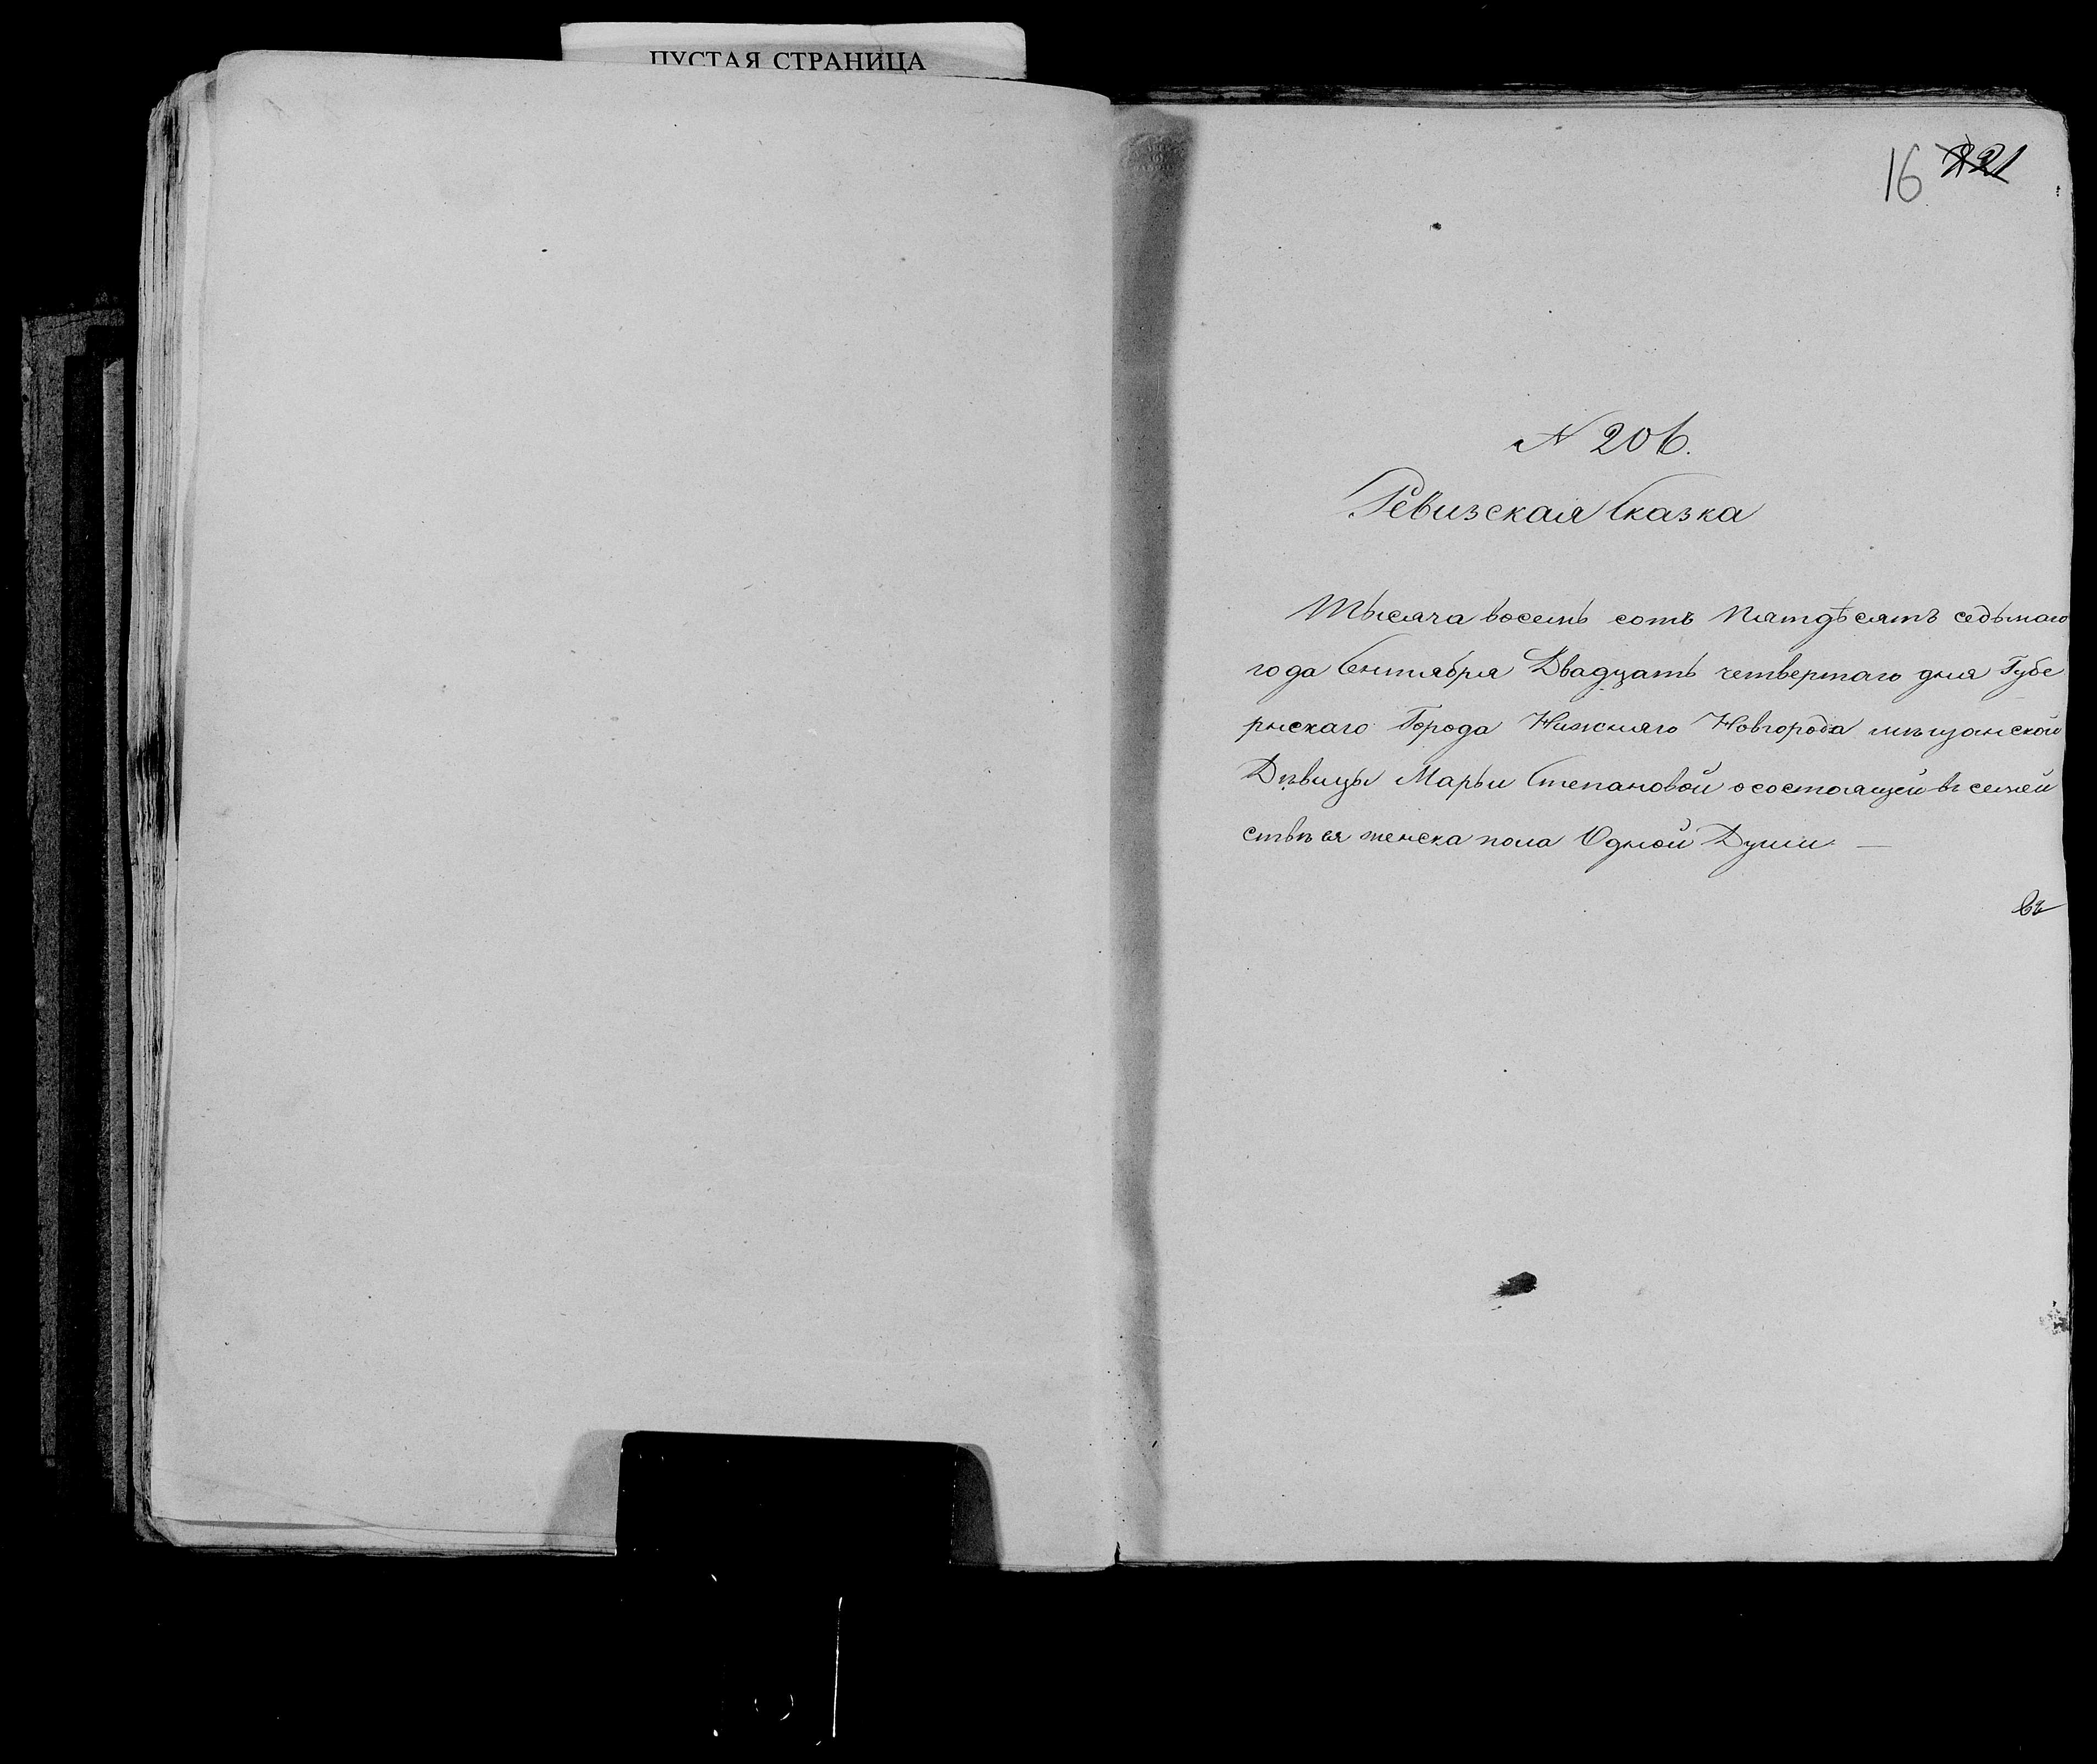 ПУСТАЯ СТРАНИЦА
16 221
N 206.
Ревизская Сказка
Тысяча восемь сотъ пятдѣсятъ седьмаго
года Сентября Двадцать четвертаго дня Губе
рнскаго Города Нижняго Новгорода мѣщанской
Дѣвицы Марьи Степановой о состоящей въ семей
ствѣ ея женска пола Одной Души —